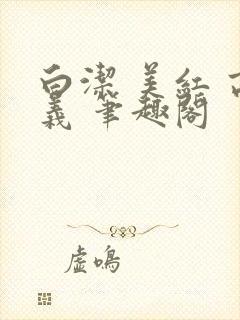 白潔 美紅 高
義 筆趣閣
虛鳴